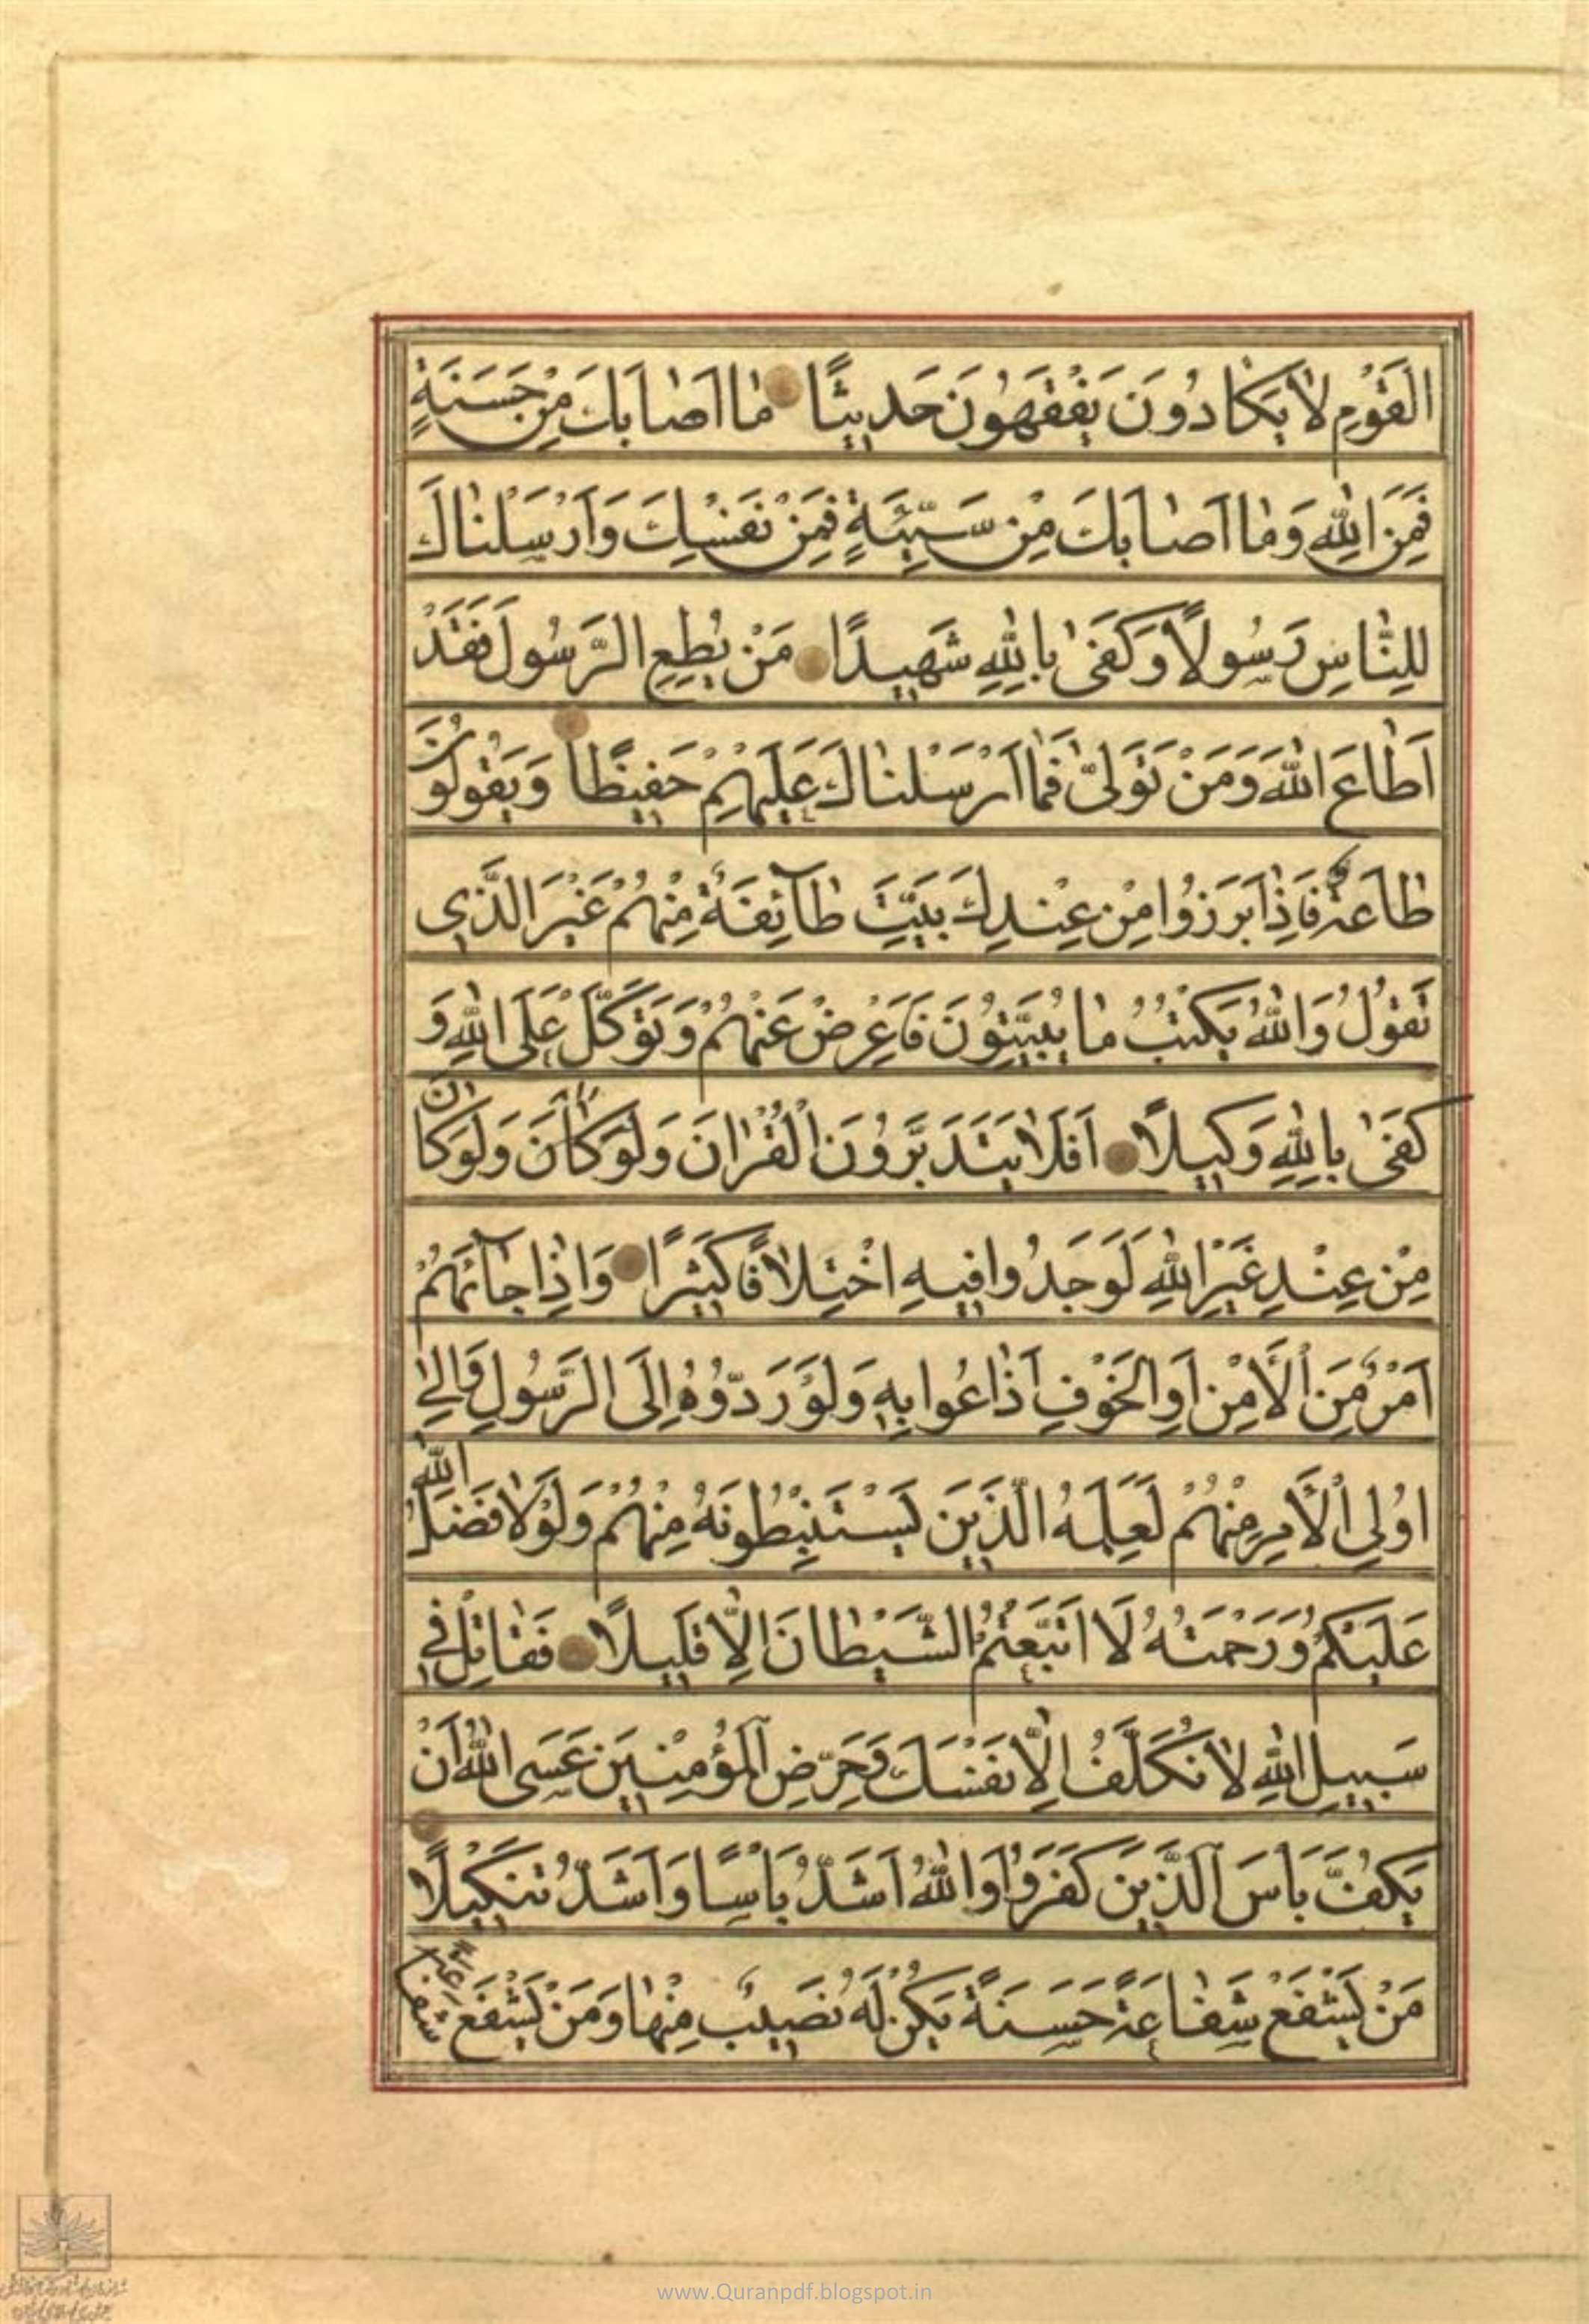 الْقَوْمِ لاٰ يَكٰادُونَ يَفْقَهُونَ حَديثًا مٰا اَصٰابَكَ مِنْ حَسَنَةٍ
فَمِنَ اللّٰهِ وَمٰا اَصٰابَكَ مِنْ سَيِّئَةٍ فَمِنْ نَفْسِكَ وَاَرْسَلْنٰاكَ
لِلنّٰاسِ رَسُولاً وَكَفىٰ بِاللّٰهِ شَهيدًا مَنْ يُطِعِ الرَّسُولَ فَقَدْ
اَطٰاعَ اللّٰهَ وَمَنْ تَوَلّىٰ فَمٰا اَرْسَلْنٰاكَ عَلَيْهِمْ حَفيظًا وَيَقُولُونَ
طٰاعَةٌ فَاِذٰا بَرَزُوا مِنْ عِنْدِكَ بَيَّتَ طٰآئِفَةٌ مِنْهُمْ غَيْرَ الَّذي
تَقُولُ وَاللّٰهُ يَكْتُبُ مٰا يُبَيِّتُونَ فَاَعْرِضْ عَنْهُمْ وَتَوَكَّلْ عَلَى اللّٰهِ وَ
كَفىٰ بِاللّٰهِ وَكيلاً اَفَلاٰ يَتَدَبَّرُونَ الْقُرْاٰنَ وَلَوْ كٰانَ وَلَوْ كٰانَ
مِنْ عِنْدِ غَيْرِ اللّٰهِ لَوَجَدُوا فيهِ اخْتِلاٰفًا كَثيرًا وَاِذٰا جٰآئَهُمْ
اَمْرٌ مِنَ الْاَمْنِ اَوِ الْخَوْفِ اَذٰاعُوا بِهِ وَلَوْ رَدُّوهُ اِلَى الرَّسُولِ وَاِلىٰ
اُولِي الْاَمْرِ مِنْهُمْ لَعَلِمَهُ الَّذينَ يَسْتَنْبِطُونَهُ مِنْهُمْ وَلَوْلاٰ فَضْلُ اللّٰهِ
عَلَيْكُمْ وَرَحْمَتُهُ لَا اتَّبَعْتُمُ الشَّيْطٰانَ اِلّٰا قَليلاً فَقٰاتِلْ في
سَبيلِ اللّٰهِ لاٰ تُكَلَّفُ اِلّٰا نَفْسَكَ وَحَرِّضِ الْمُؤْمِنينَ عَسَى اللّٰهُ اَنْ
يَكُفَّ بَأْسَ الَّذينَ كَفَرُوا وَاللّٰهُ اَشَدُّ بَأْسًا وَاَشَدُّ تَنْكيلاً
مَنْ يَشْفَعْ شَفٰاعَةً حَسَنَةً يَكُنْ لَهُ نَصيبٌ مِنْهٰا وَمَنْ يَشْفَعْ شَفٰاعَةً
www.Quranpdf.blogspot.in